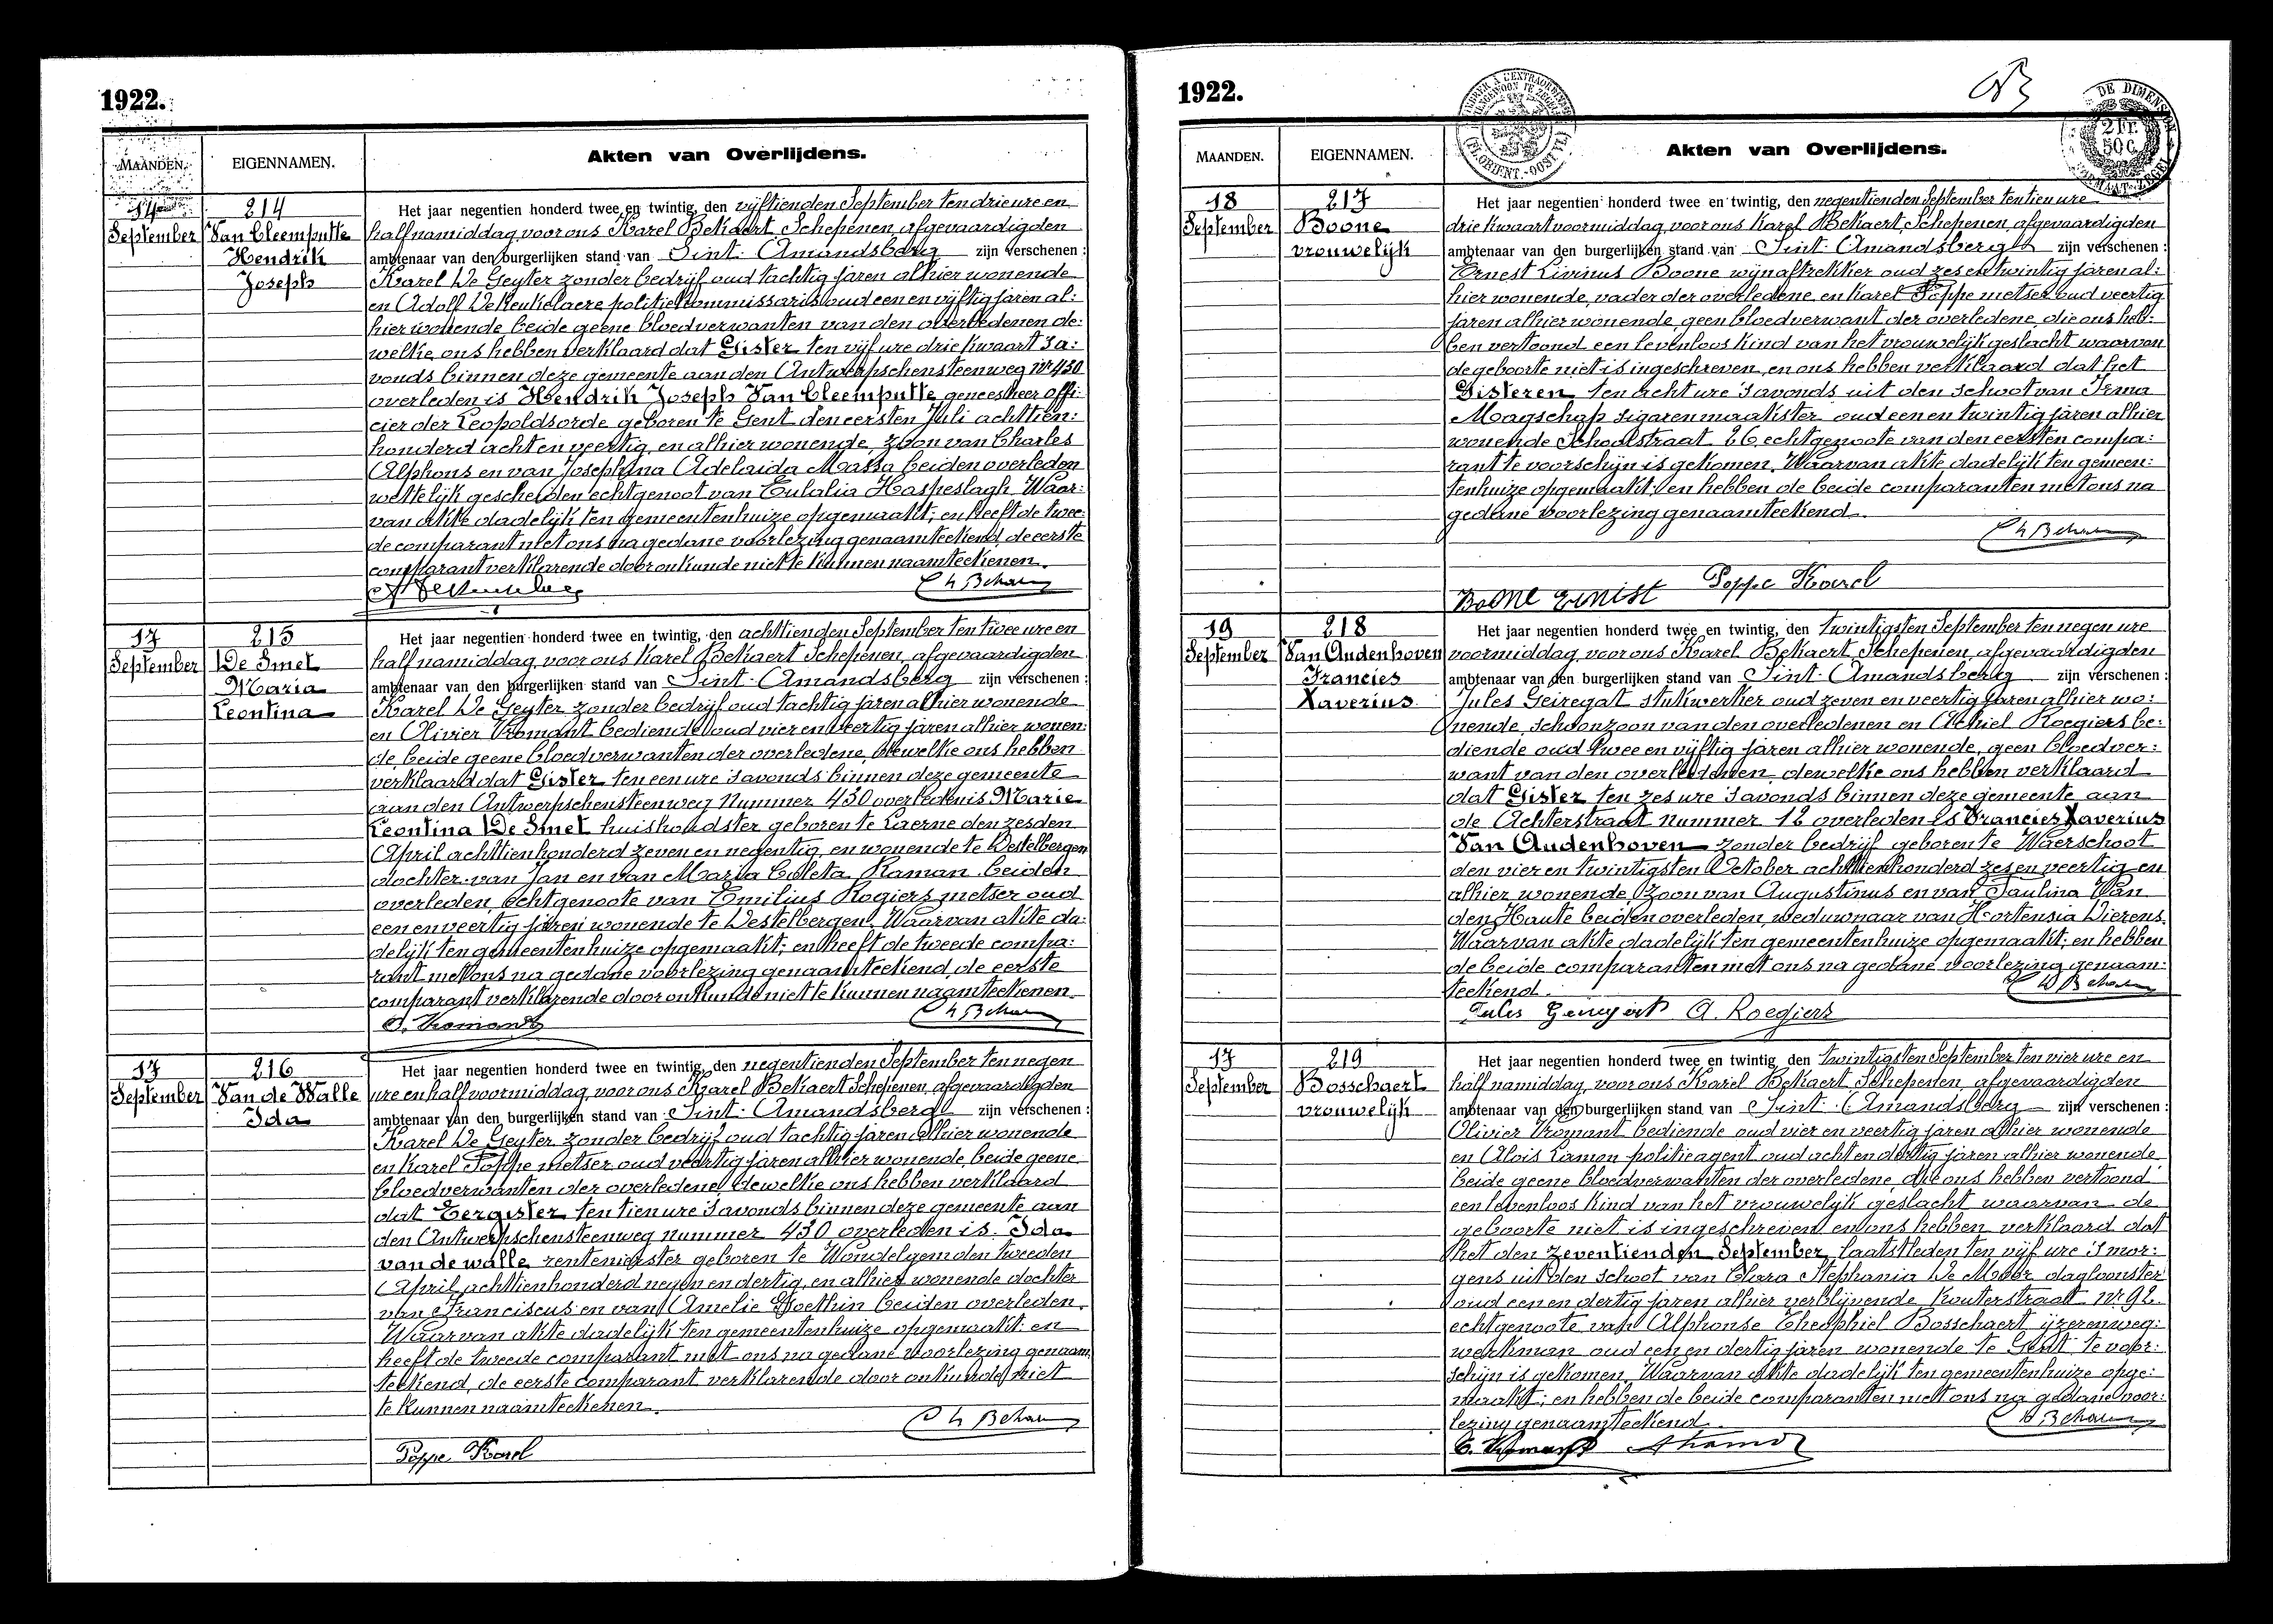 1922.
MAANDEN.
EIGENNAMEN.
Akten van Overlijdens.
14
September
214
Van Cleemputte
Hendrik
Joseph
Het jaar negentien honderd twee en twintig, den vijftienden September ten drie ure en
half namiddag, voor ons Karel Bekaert, Schepenen, afgevaardigden
ambtenaar van den burgerlijken stand van Sint-Amandsberg zijn verschenen :
Karel De Geyter zonder bedrijf oud tachtig jaren alhier wonende
en Adolf Dekeukelaere politiecommissaris oud een en vijftig jaren al:
hier wonende, beide geene bloedverwanten van den overledenen de:
welke ons hebben verklaard dat Gister ten vijf ure drie kwaart 's a:
vonds binnen deze gemeente aan den Antwerpschensteenweg Nr 430
overleden is Hendrik Joseph Van Cleemputte geneesheer offi:
cier der Leopoldsorde geboren te Gent den eersten Juli achttien:
honderd acht en veertig, en alhier wonende, zoon van Charles
Alphons en van Josephina Adelaida Massa beiden overleden
wettelijk gescheiden echtgenoot van Eulalia Haspeslagh. Waar:
van akte dadelijk ten gemeentenhuize opgemaakt; en heeft de twee:
de comparant met ons na gedane voorlezing genaamteekend, de eerste
comparant verklarende door onkunde niet te kunnen naamteekenen.
17
September
215
De Smet
Maria
Leontina
Het jaar negentien honderd twee en twintig, den achttienden September ten twee ure en
half namiddag, voor ons Karel Bekaert Schepenen, afgevaardigden
ambtenaar van den burgerlijken stand van Sint-Amandsberg zijn verschenen :
Karel De Geyter zonder bedrijf oud tachtig jaren alhier wonende
en Olivier Vromant bediende oud vier en veertig jaren alhier wonen:
de, beide geene bloedverwanten der overledene, dewelke ons hebben
verklaard dat Gister ten een ure 's avonds binnen deze gemeente
aan den Antwerpschensteenweg Nummer 430 overleden is Marie
Leontina De Smet huishoudster geboren te Laerne den zesden
April achttienhonderd zeven en negentig, en wonende te Destelbergen
dochter van Jan en van Maria Coleta Raman beiden
overleden, echtgenoote van Emilius Rogiers metser oud
een en veertig jaren wonende te Destelbergen. Waarvan akte da:
delijk ten gemeentenhuize opgemaakt; en heeft de tweede compa:
rant met ons na gedane voorlezing genaamteekend, de eerste
comparant verklarende door onkunde niet te kunnen naamteekenen.
O. Vromant
17
September
216
Van de Walle
Ida
Het jaar negentien honderd twee en twintig, den negentienden September ten negen
ure en half voormiddag, voor ons Karel Bekaert Schepenen, afgevaardigden
ambtenaar van den burgerlijken stand van Sint-Amandsberg zijn verschenen :
Karel De Geyter zonder bedrijf oud tachtig jaren alhier wonende
en Karel Poppe metser oud veertig jaren alhier wonende, beide geene
bloedverwanten der overledene, dewelke ons hebben verklaard
dat Eergister ten tien ure 's avonds binnen deze gemeente aan
den Antwerpschensteenweg nummer 430 overleden is Ida
van de walle rentenierster geboren te Wondelgem den tweeden
April achttienhonderd negen en dertig, en alhier wonende dochter
van Franciscus en van Amelie Goethin beiden overleden.
Waarvan akte dadelijk ten gemeentenhuize opgemaakt: en
heeft de tweede comparant met ons na gedane voorlezing genaam:
teekend, de eerste comparant verklarende door onkunde niet
te kunnen naamteekenen.
Poppe Karel
1922.
2 Fr.
50 C.
MAANDEN.
EIGENNAMEN.
Akten van Overlijdens.
18
September
217
Boone
vrouwelijk
Het jaar negentien honderd twee en twintig, den negentienden September ten tien ure
drie kwaart voormiddag, voor ons Karel Bekaert, Schepenen, afgevaardigden
ambtenaar van den burgerlijken stand van Sint-Amandsberg zijn verschenen :
Ernest Livinus Boone wijnaftrekker oud zes en twintig jaren al:
hier wonende, vader der overledene, en Karel Poppe metser oud veertig
jaren alhier wonende, geen bloedverwant der overledene, die ons heb:
ben vertoond een levenloos kind van het vrouwelijk geslacht waarvan
de geboorte niet is ingeschreven, en ons hebben verklaard dat het
Gisteren ten acht ure 's avonds uit den schoot van Irma
Maagschap sigarenmaakster oud een en twintig jaren alhier
wonende Schoolstraat 26 echtgenoote van den eersten compa:
rant te voorschijn is gekomen. Waarvan akte dadelijk ten gemeen:
tenhuize opgemaakt; en hebben de beide comparanten met ons na
gedane voorlezing genaamteekend.
Boone Ernist Poppe Karel
19
September
218
Van Audenhoven
Francies
Xaverius
Het jaar negentien honderd twee en twintig, den twintigsten September ten negen ure
voormiddag, voor ons Karel Bekaert, Schepenen, afgevaardigden
ambtenaar van den burgerlijken stand van Sint-Amandsberg zijn verschenen :
Jules Geiregat stukwerker oud zeven en veertig jaren alhier wo:
nende, schoonzoon van den overledenen en Achiel Roegiers be:
diende oud twee en vijftig jaren alhier wonende, geen bloedver:
want van den overledenen, dewelke ons hebben verklaard
dat Gister ten zes ure 's avonds binnen deze gemeente aan
de Achterstraat nummer 12 overleden is Francies Xaverius
Van Audenhoven zonder bedrijf geboren te Waerschoot
den vier en twintigsten October achttienhonderd zes en veertig en
alhier wonende, zoon van Augustinus en van Paulina Van
den Haute beiden overleden, weduwnaar van Hortensia Dierens.
Waarvan akte dadelijk ten gemeentenhuize opgemaakt; en hebben
de beide comparanten met ons na gedane voorlezing genaam:
teekend.
A. Roegiers
17
September
219
Bosschaert
vrouwelijk
Het jaar negentien honderd twee en twintig, den twintigsten September ten vier ure en
half namiddag, voor ons Karel Bekaert Schepenen, afgevaardigden
ambtenaar van den burgerlijken stand van Sint-Amandsberg zijn verschenen :
Olivier Vromant bediende oud vier en veertig jaren alhier wonende
en Alois Lamon politieagent oud acht en dertig jaren alhier wonende
beide geene bloedverwanten der overledene, die ons hebben vertoond
een levenloos kind van het vrouwelijk geslacht waarvan de
geboorte niet is ingeschreven en ons hebben verklaard dat
het den zeventienden September laatstleden ten vijf ure 's mor:
gens uit den schoot van Clara Stephania De Moor dagloonster
oud een en dertig jaren alhier verblijvende Kouterstraat Nr 92.
echtgenoote van Alphonse Theophiel Bosschaert ijzerenweg:
werkman oud een en dertig jaren wonende te Gent te voor:
schijn is gekomen. Waarvan akte dadelijk ten gemeentenhuize opge:
maakt; en hebben de beide comparanten met ons na gedane voor:
lezing genaamteekend.